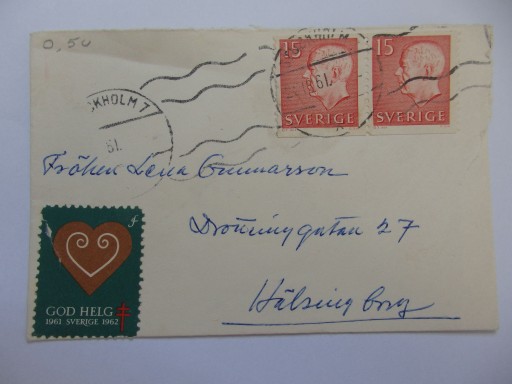 0,50
15 15
SVERIGE SVERIGE
CKHOLM
61.
CKHOLM 7
61.
Fröken Lena Gunnarson
Drottninggatan 27
Hälsingborg
GOD HELG
1961 SVERIGE 1962